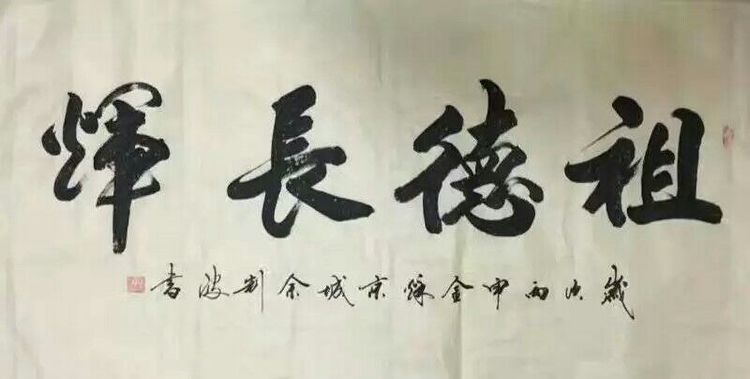 祖德長輝
歲次丙申金秋京城余利波書